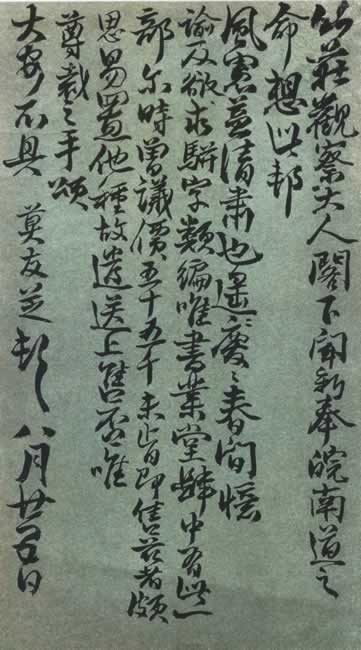 竹莊觀察大人閣下聞新奉皖南道之
命想此邦
風憲益清肅也遥慶遥慶春間懷
諭及欲求駢字類編唯書業堂肆中有此一
部尔時曾議價五十五千未肯即售兹者頗
思易置他種故遣送上售否唯
尊裁之手頌
大安不具 莫友芝頓頓 八月廿五日